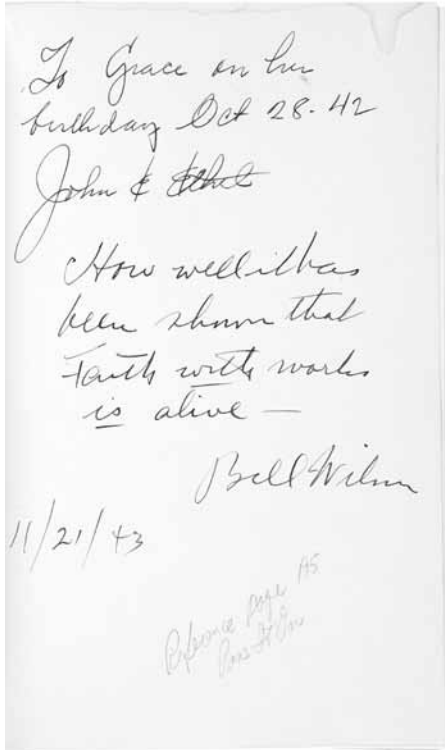 To Grace on her
birthday Oct 28-42
John & Ethel
How well it has
been shown that
Faith with works
is alive —
Bill Wilson
11/21/43
Reference page